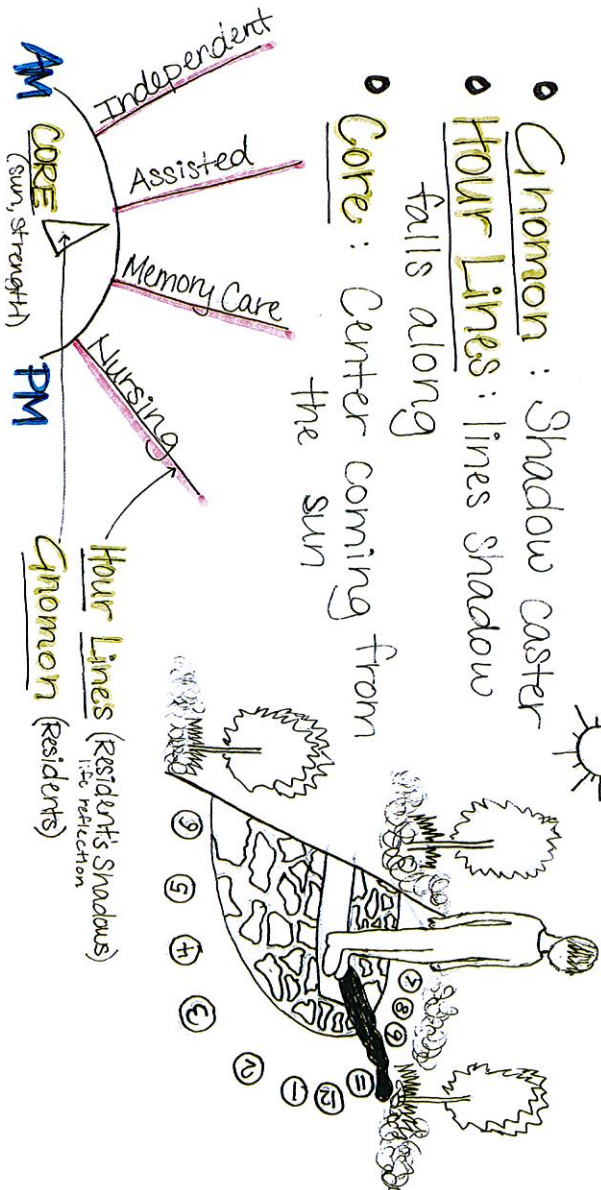 • Gnomon : Shadow caster
• Hour Lines : lines shadow
falls along
• Core : Center coming from
the sun
Independent
Assisted
Memory Care
Nursing
AM
CORE
(sun, strength)
PM
Hour Lines (Resident's Shadows)
life reflection
Gnomon (Residents)
6
5
4
3
2
1
12
11
9
8
7